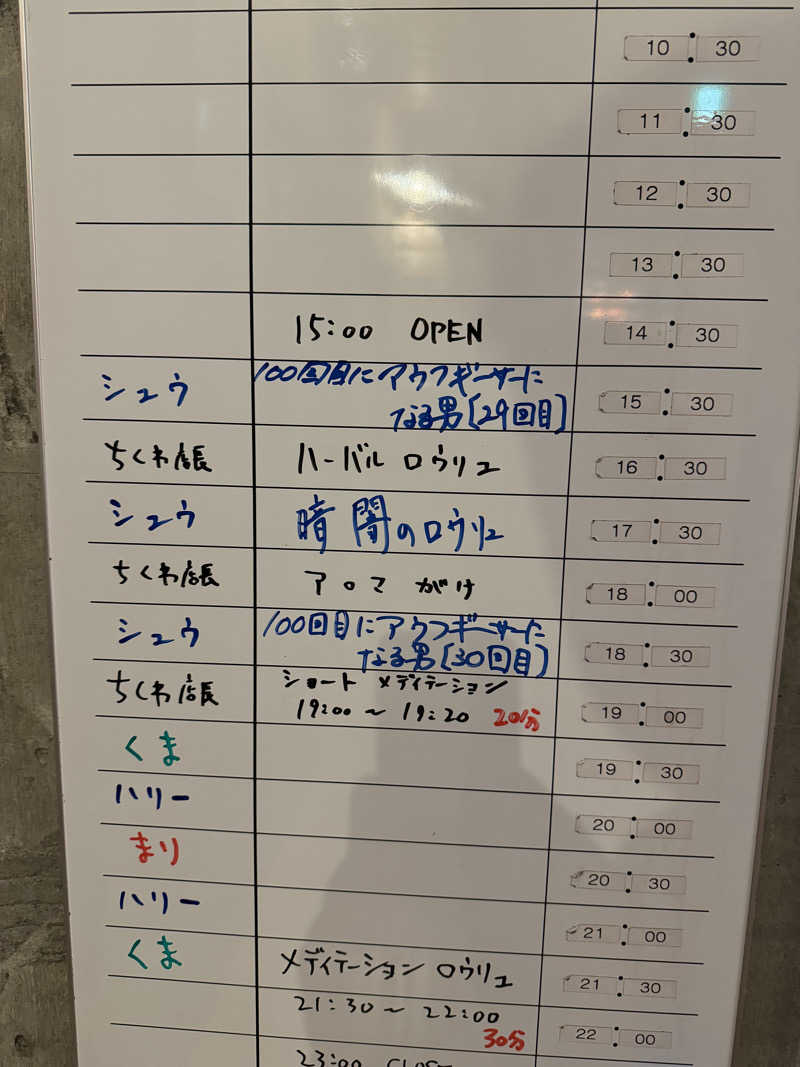 10:30
11:30
12:30
13:30
15:00 OPEN 14:30
シュウ 100回目にアウフギーサーに
なる男[29回目] 15:30
ちくわ店長 ハーバル ロウリュ 16:30
シュウ 暗闇のロウリュ 17:30
ちくわ店長 アロマ がけ 18:00
シュウ 100回目にアウフギーサーに
なる男[30回目] 18:30
ちくわ店長 ショート メディテーション
19:00〜19:20 20分 19:00
くま 19:30
ハリー 20:00
まり 20:30
ハリー 21:00
くま メディテーション ロウリュ 21:30
21:30〜22:00
30分 22:00
23:00 CLOSE